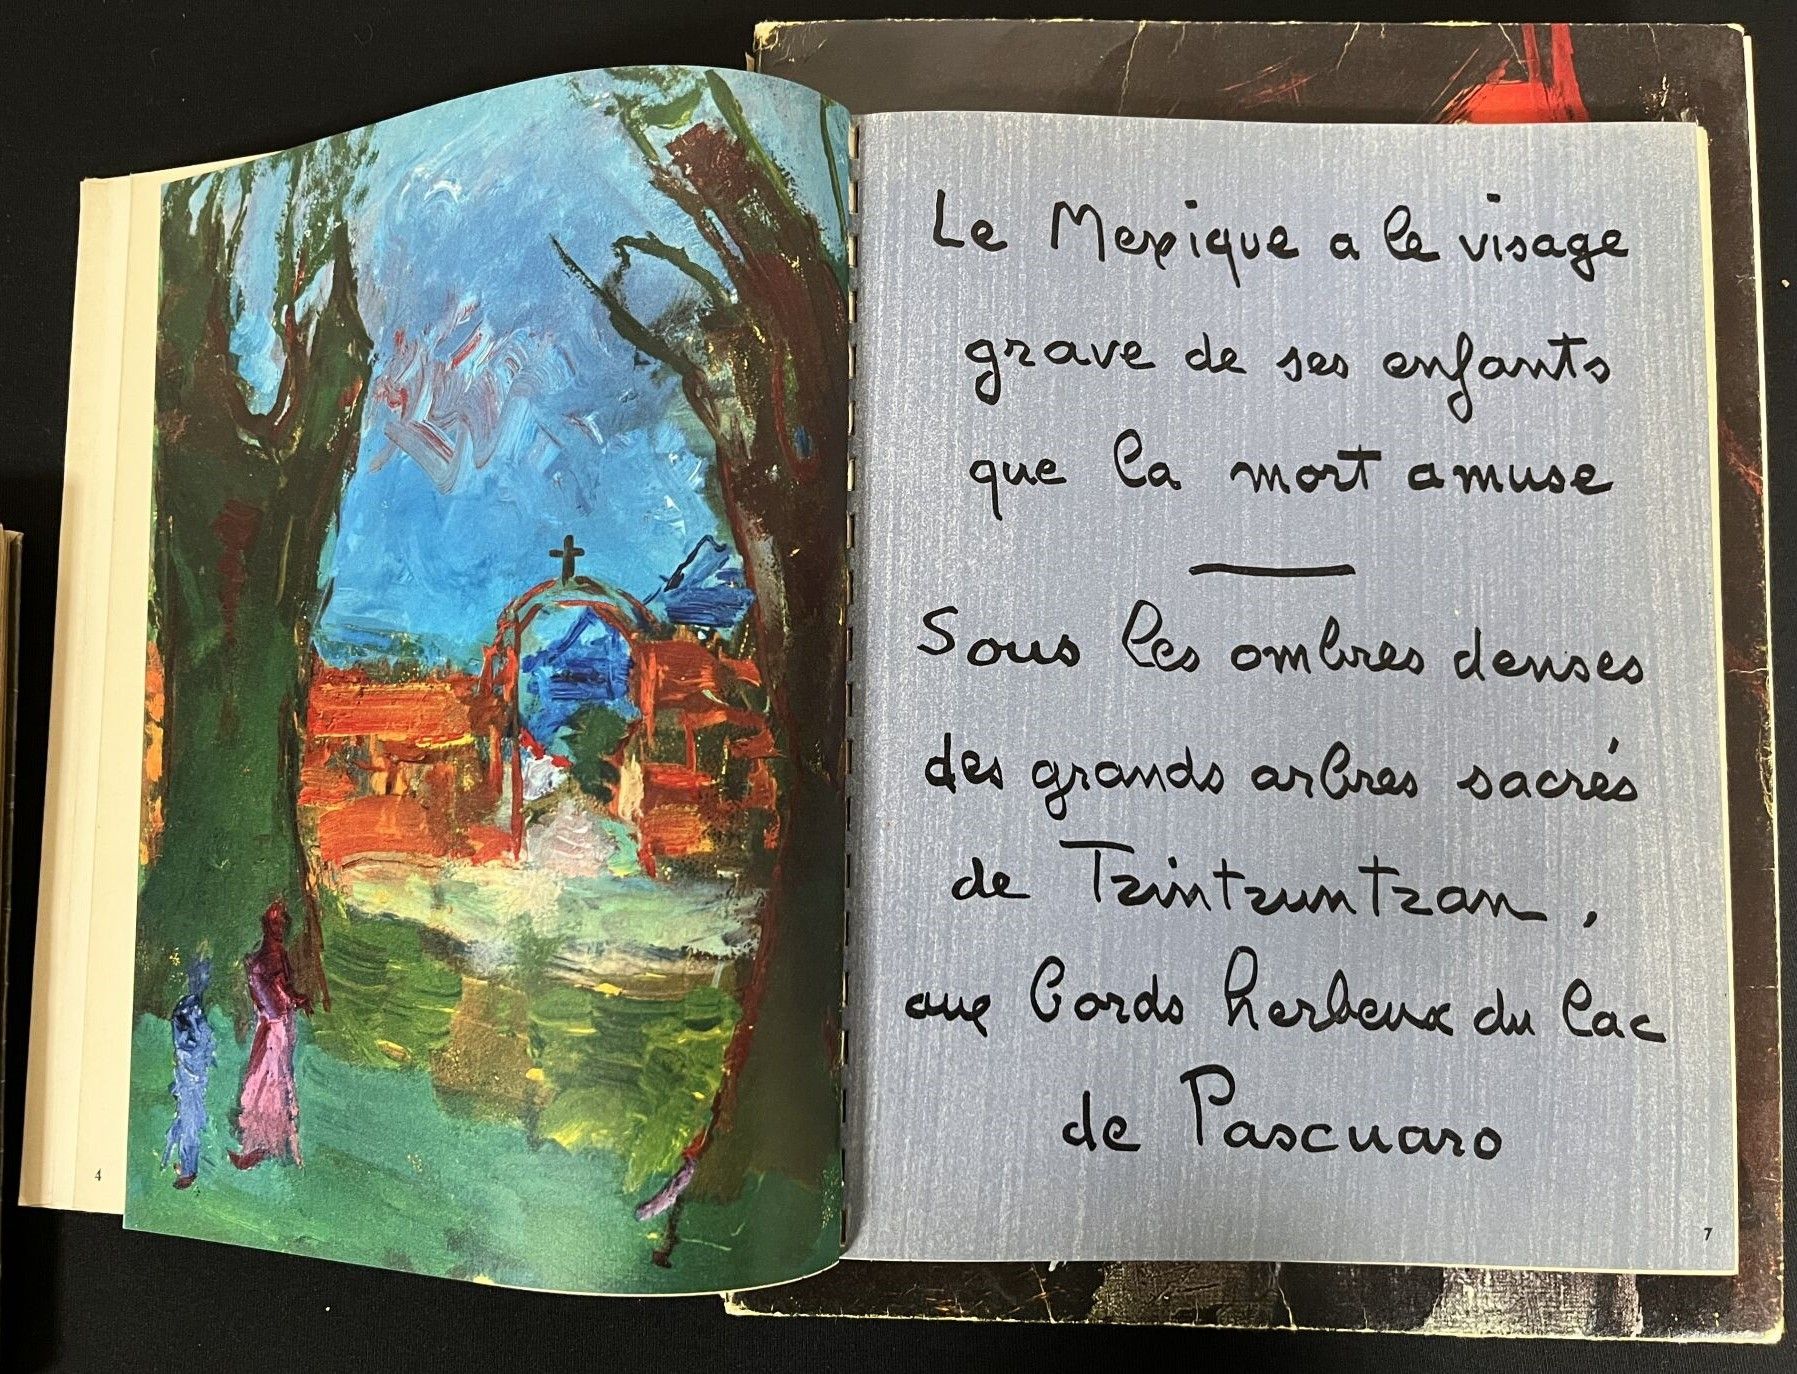 4
Le Mexique a le visage
grave de ses enfants
que la mort amuse
Sous les ombres denses
des grands arbres sacrés
de Tzintzuntzan,
aux bords herbeux du lac
de Pascuaro
7